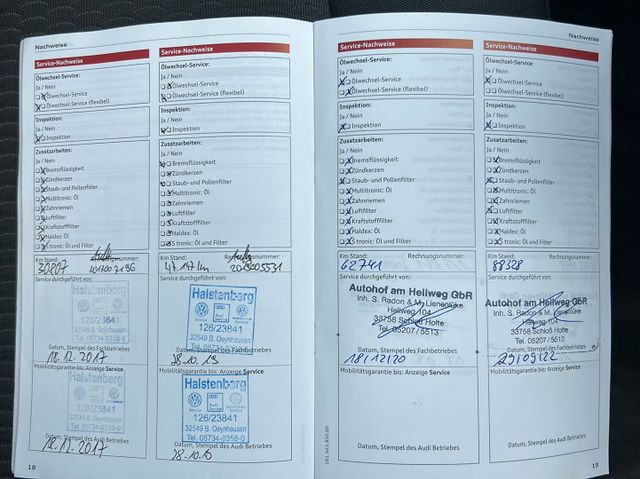 Nachweise
Service-Nachweise
Ölwechsel-Service:
Ja / Nein
Ölwechsel-Service
Ölwechsel-Service (flexibel)
Inspektion:
Ja / Nein
Inspektion
Zusatzarbeiten:
Ja / Nein
Bremsflüssigkeit
Zündkerzen
Staub- und Pollenfilter
Multitronic: Öl
Zahnriemen
Luftfilter
Kraftstofffilter
Haldex: Öl
S tronic: Öl und Filter
Km Stand: Rechnungsnummer:
30807
Service durchgeführt von:
Halstenberg
126/23841
32549 B. Oeynhausen
Tel. 05734-9358-0
Datum, Stempel des Fachbetriebes
18.12.2017
Mobilitätsgarantie bis: Anzeige Service
Halstenberg
126/23841
32549 B. Oeynhausen
Tel. 05734-9358-0
Datum, Stempel des Audi Betriebes
18.12.2017
18
Service-Nachweise
Ölwechsel-Service:
Ja / Nein
Ölwechsel-Service
Ölwechsel-Service (flexibel)
Inspektion:
Ja / Nein
Inspektion
Zusatzarbeiten:
Ja / Nein
Bremsflüssigkeit
Zündkerzen
Staub- und Pollenfilter
Multitronic: Öl
Zahnriemen
Luftfilter
Kraftstofffilter
Haldex: Öl
S tronic: Öl und Filter
Km Stand: Rechnungsnummer:
Service durchgeführt von:
Halstenberg
126/23841
32549 B. Oeynhausen
Tel. 05734-9358-0
Datum, Stempel des Fachbetriebes
Mobilitätsgarantie bis: Anzeige Service
Halstenberg
126/23841
32549 B. Oeynhausen
Tel. 05734-9358-0
Datum, Stempel des Audi Betriebes
161.563.850.00
Service-Nachweise
Ölwechsel-Service:
Ja / Nein
Ölwechsel-Service
Ölwechsel-Service (flexibel)
Inspektion:
Ja / Nein
Inspektion
Zusatzarbeiten:
Ja / Nein
Bremsflüssigkeit
Zündkerzen
Staub- und Pollenfilter
Multitronic: Öl
Zahnriemen
Luftfilter
Kraftstofffilter
Haldex: Öl
S tronic: Öl und Filter
Km Stand: Rechnungsnummer:
62741
Service durchgeführt von:
Autohof am Hellweg GbR
Inh. S. Radon & M. Lienenlüke
Hellweg 104
33758 Schloß Holte
Tel. 05207/5513
Datum, Stempel des Fachbetriebes
18/12/20
Mobilitätsgarantie bis: Anzeige Service
Datum, Stempel des Audi Betriebes
Nachweise
Service-Nachweise
Ölwechsel-Service:
Ja / Nein
Ölwechsel-Service
Ölwechsel-Service (flexibel)
Inspektion:
Ja / Nein
Inspektion
Zusatzarbeiten:
Ja / Nein
Bremsflüssigkeit
Zündkerzen
Staub- und Pollenfilter
Multitronic: Öl
Zahnriemen
Luftfilter
Kraftstofffilter
Haldex: Öl
S tronic: Öl und Filter
Km Stand: Rechnungsnummer:
88328
Service durchgeführt von:
Autohof am Hellweg GbR
Inh. S. Radon & M. Lienenlüke
Hellweg 104
33758 Schloß Holte
Tel. 05207 / 5513
Datum, Stempel des Fachbetriebes
29/09/22
Mobilitätsgarantie bis: Anzeige Service
Datum, Stempel des Audi Betriebes
19